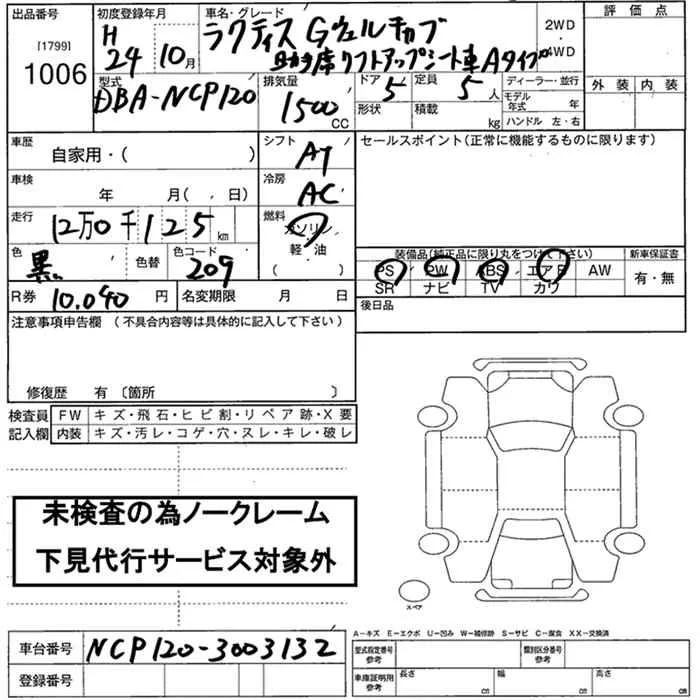 出品番号 初度登録年月 車名・グレード 評価点
[1799] 1006
H 24 10月
ラクティス Gウェルキャブ
助手席リフトアップシート車 Aタイプ
2WD・4WD
外装 内装
型式 排気量 ドア 定員 ディーラー・並行
DBA-NCP120 1500 CC 5 5人
モデル年式 年
形状 積載 kg ハンドル 左・右
車歴 シフト セールスポイント(正常に機能するものに限ります)
自家用・( ) AT
車検 冷房
年 月( , 日) AC
走行 燃料
12万0千125km ガソリン
軽・油
( )
色 色替 色コード
黒 209
装備品(純正品に限り丸をつけて下さい) 新車保証書
PS PW ABS エアB AW 有・無
SR ナビ TV カワ
R券 10,040円 名変期限 月 日
後日品
注意事項申告欄 (不具合内容等は具体的に記入して下さい)
修復歴 有 〔箇所 〕
検査員 FW キズ・飛石・ヒビ割・リペア跡・X要
記入欄 内装 キズ・汚レ・コゲ・穴・ヌレ・キレ・破レ
未検査の為ノークレーム
下見代行サービス対象外
スペア
A-キズ E-エクボ U-凹み W-補修跡 S-サビ C-腐食 XX-交換済
車台番号 NCP120-3003132
型式指定番号 参考 類別区分番号 参考
登録番号
車庫証明用 参考 長さ cm 幅 cm 高さ cm